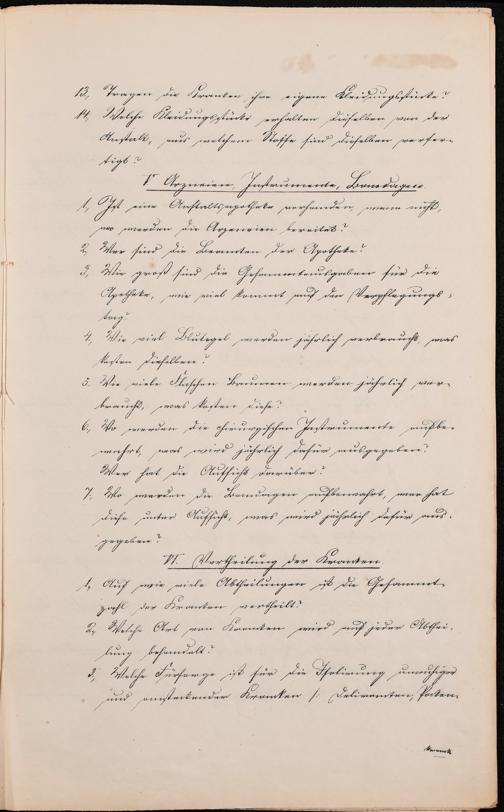 13, Tragen die Kranken ihre eigene Kleidungsstücke?
14, Welche Kleidungsstücke erhalten dieselben von der
Anstalt, aus welchem Stoffe sind dieselben verfer-
tigt?
V Arzneien, Instrumente, Bandagen.
1, Ist eine Anstaltsapotheke vorhanden, wenn nicht,
wo werden die Arzeneien bereitet?
2, Wer sind die Beamten der Apotheke?
3, Wie groß sind die Gesammtausgaben für die
Apotheke, wie viel kommt auf den Verpflegungs-
tag?
4, Wie viel Blutegel werden jährlich verbraucht, was
kosten dieselben?
5. Wie viele Flaschen Brunnen werden jährlich ver-
braucht, was kosten diese?
6, Wo werden die chirurgischen Instrumente aufbe-
wahrt, was wird jährlich dafür ausgegeben?
Wer hat die Aufsicht darüber?
7. Wo werden die Bandagen aufbewahrt, wer hat
diese unter Aufsicht, was wird jährlich dafür aus-
gegeben?
VI. Vertheilung der Kranken.
1, Auf wie viele Abtheilungen ist die Gesammt-
zahl der Kranken vertheilt?
2, Welche Art von Kranken wird auf jeder Abthei-
lung behandelt?
3, Welche Fürsorge ist für die Isolierung unruhiger
und ansteckender Kranken /: Deliranten, Pocken-
krank